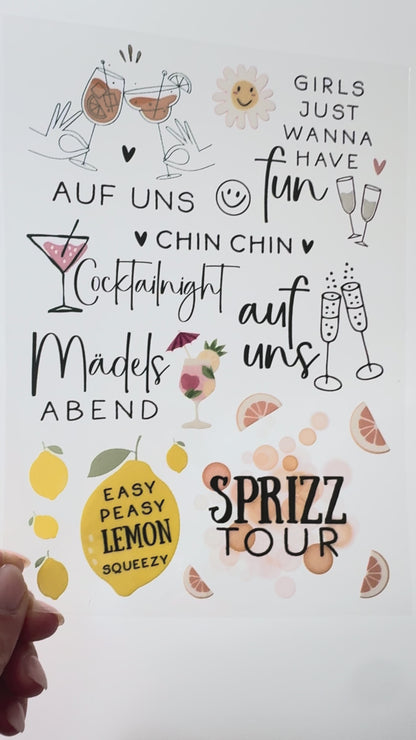 GIRLS
JUST
WANNA
HAVE
fun
AUF UNS
CHIN CHIN
Cocktailnight
auf
uns
Mädels
ABEND
EASY
PEASY
LEMON
SQUEEZY
SPRIZZ
TOUR